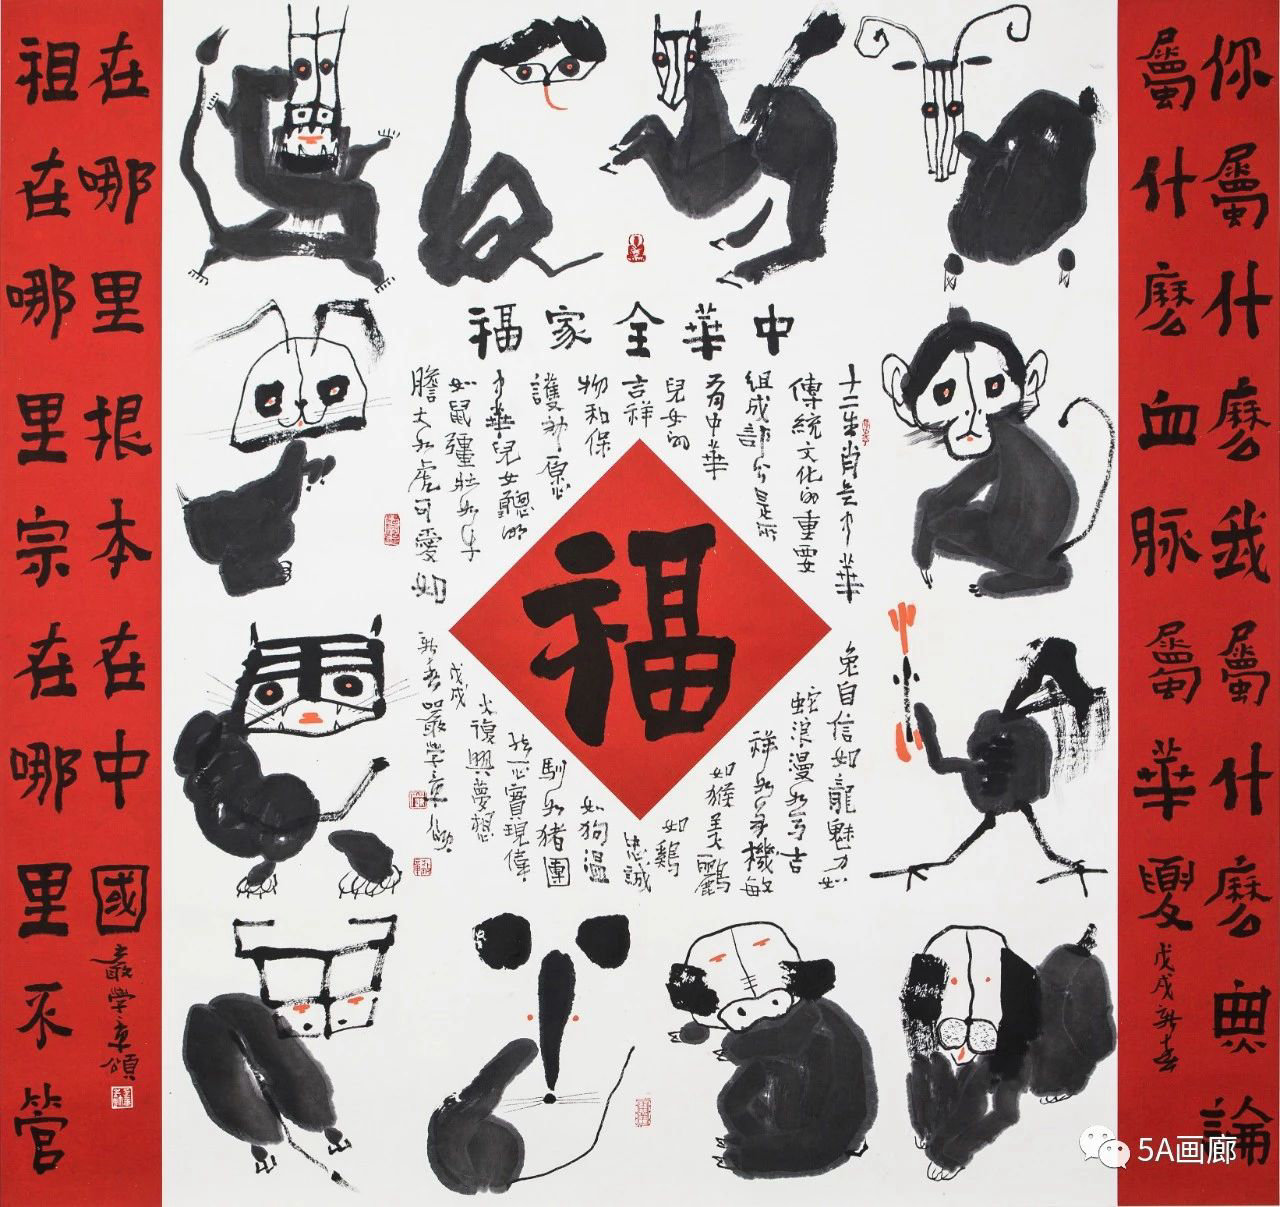 你屬什麼我屬什麼無論
屬什麼血脈屬華夏
戊戌新春
中華全家福
十二生肖是中華
傳統文化的重要
組成部分是所
有中華
兒女的
吉祥
物和保
護神愿
中華兒女聰明
如鼠彊壯如牛
膽大如虎可愛如
兔自信如龍魅力如
蛇浪漫如馬吉
祥如羊機敏
如猴美麗
如鷄
忠誠
如狗溫
馴如猪團
結一心實現偉
大復興夢想
戊戌
新春嚴學章頌
福
祖在哪里宗在哪里不管
在哪里根本在中國
嚴學章頌
5A画廊